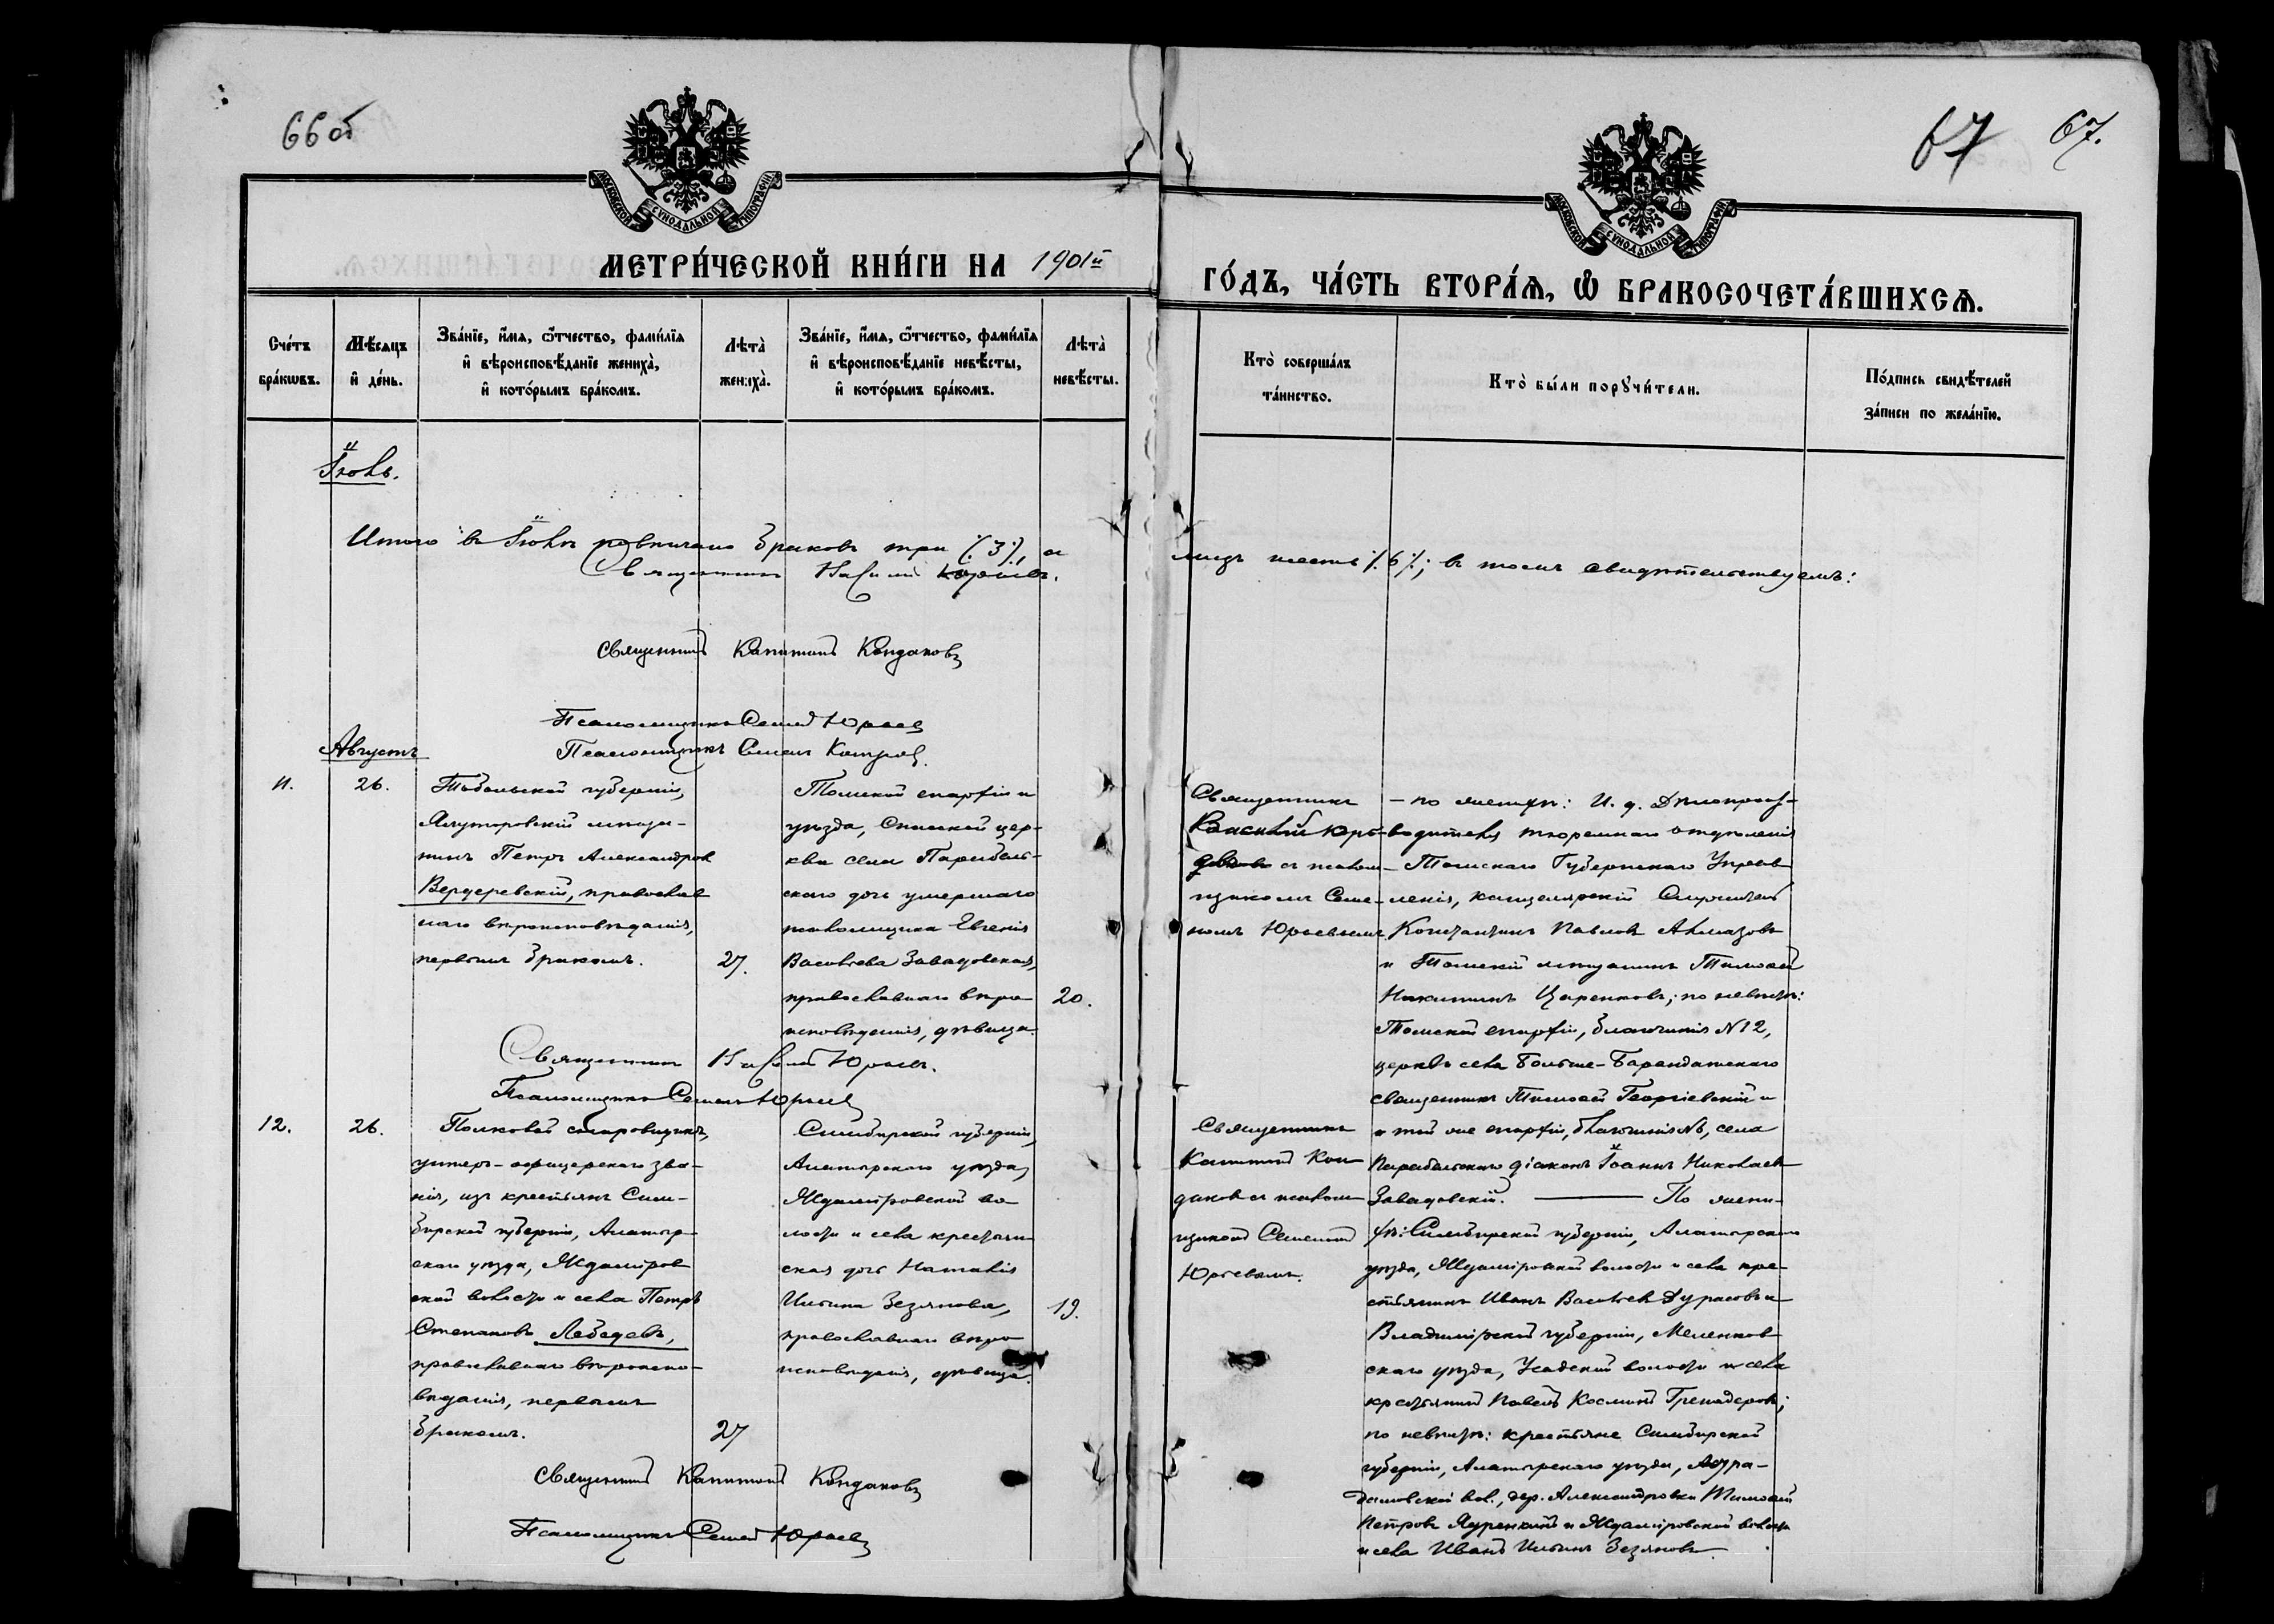 66 об
67
67.
МОСКОВСКОЙ СѴНОДАЛЬНОЙ ТИПОГРАФІИ
МОСКОВСКОЙ СѴНОДАЛЬНОЙ ТИПОГРАФІИ
МЕТРИ́ЧЕСКОЙ КНИ́ГИ НА 1901й
ГО́ДЪ, ЧА́СТЬ ВТОРА́Я, Ѡ БРАКОСОЧЕТА́ВШИХСЯ.
Сче́тъ бра́кѡвъ.
Мѣ́сяцъ и҆ де́нь.
Зва́нїе, и҆́мя, ѻ҆́тчество, фами́лїя и҆ вѣроисповѣ́данїе жениха̀, и҆ кото́рымъ бра́комъ.
Лѣта̀ жениха̀.
Зва́нїе, и҆́мя, ѻ҆́тчество, фами́лїя и҆ вѣроисповѣ́данїе невѣ́сты, и҆ кото́рымъ бра́комъ.
Лѣта̀ невѣ́сты.
Кто̀ соверша́лъ та́инство.
Кто̀ бы́ли порꙋчи́тели.
По́дпись свидѣ́телей за́писи по жела́нїю.
Іюль.
Итого въ Іюлѣ повѣнчано браковъ три (3), а
лицъ шесть (6); въ томъ свидѣтельствуемъ:
Священникъ Василій Юрьевъ.
Священникъ Капитонъ Кондаковъ
Псаломщикъ Семенъ Юрьевъ
Псаломщикъ Семенъ
Августъ
11.
26.
Тобольской губерніи,
Ялуторовскій мѣща-
нинъ Петръ Александровъ
Вердеревскій, православ
наго вѣроисповѣданія,
первымъ бракомъ.
27.
Томской епархіи и
уѣзда, Спасской цер-
кви села Парабель-
скаго дочь умершаго
псаломщика Евгенія
Васильева Завадовская,
православнаго вѣро
исповѣданія, дѣвица.
20.
Священникъ
Василій Юрь-
евъ съ псалом-
щикомъ Семе-
номъ Юрьевымъ.
– по женихѣ: И. д. Дѣлопроиз-
водителя тюремнаго отдѣленія
Томскаго Губернскаго Управ
ленія, канцелярскій служитель
Константинъ Павловъ Алмазовъ
и Томскій мѣщанинъ Тимофей
Никитинъ Царенковъ; по невѣстѣ:
Томской епархіи, благочинія № 12,
церкви села Больше-Барандатскаго
священникъ Тимофей Георгіевскій и
и той же епархіи, благочинія №, села
Парабельскаго діаконъ Іоаннъ Николаев
Завадовскій.
Священникъ Василій Юрьевъ.
Псаломщикъ Семенъ Юрьевъ
12.
26.
Полковой
унтеръ-офицерскаго зва-
нія, изъ крестьянъ Сим-
бирской губерніи, Алатыр-
скаго уѣзда, Ждамиров
ской волости и села Петръ
Степановъ Лебедевъ,
православнаго вѣроиспо-
вѣданія, первымъ
бракомъ.
27
Симбирской губерніи,
Алатырскаго уѣзда,
Ждамировской во
лости и села крестьян
ская дочь Наталія
Ильина Зезянова,
православнаго вѣро
исповѣданія, дѣвица.
19.
Священникъ
Капитонъ Кон
даковъ съ псалом
щикомъ Семеномъ
Юрьевымъ.
По жени-
хѣ: Симбирской губерніи, Алатырскаго
уѣзда, Ждамировской волости и села кре
стьянинъ Иванъ Васильев Дурасовъ и
Владимірской губерніи, Меленков
скаго уѣзда, Усадской волости и села
крестьянинъ Павелъ Косминъ Гренадеровъ;
по невѣстѣ: крестьяне Симбирской
губерніи, Алатырскаго уѣзда,
вол., дер. Александровки Тимофей
Петровъ и Ждамировской волости
и села Иванъ Ильинъ Зезяновъ.
Священникъ Капитонъ Кондаковъ
Псаломщикъ Семенъ Юрьевъ